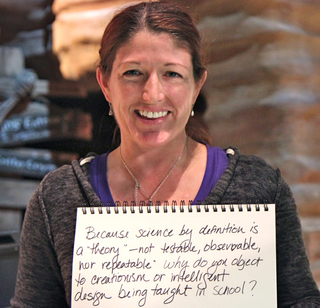 Because science by definition is
a "theory" – not testable, observable,
nor repeatable" why do you object
to creationism or intelligent
design being taught in school?